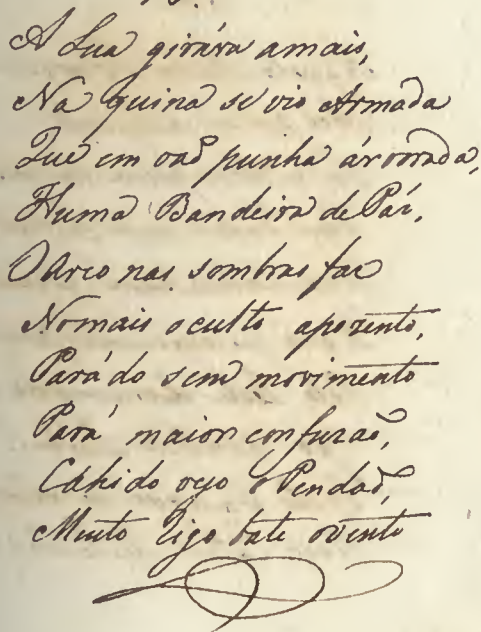 A Lua girára amais,
Na quina se vio Armada
Que em vaõ punha árvorada,
Huma Bandeira de Páz,
O Arco nas sombras faz
Nomais oculto apozento,
Pará do sem movimento
Pará maior confuzaõ,
Cahido vejo o Pendaõ,
Muito rijo bate ovento